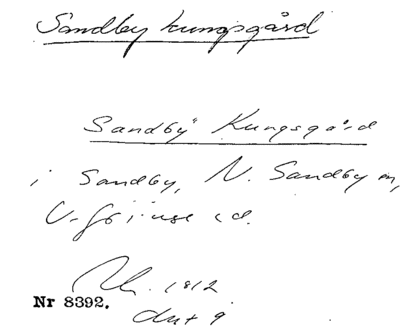 Sandby kungsgård
Sandby Kungsgård
i Sandby, N. Sandby sn,
V. Göinge hd.
1812
Nr 8392.